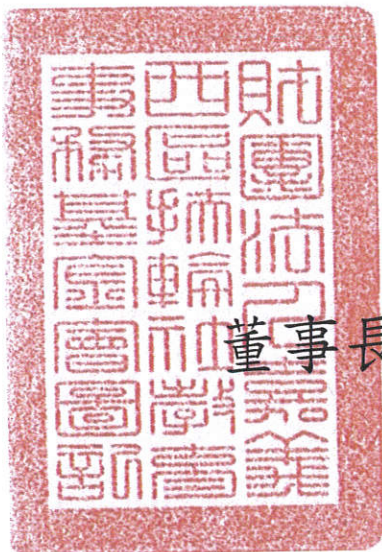 財團法人嘉義
西區扶輪社教育
事務基金會圖記
董事長